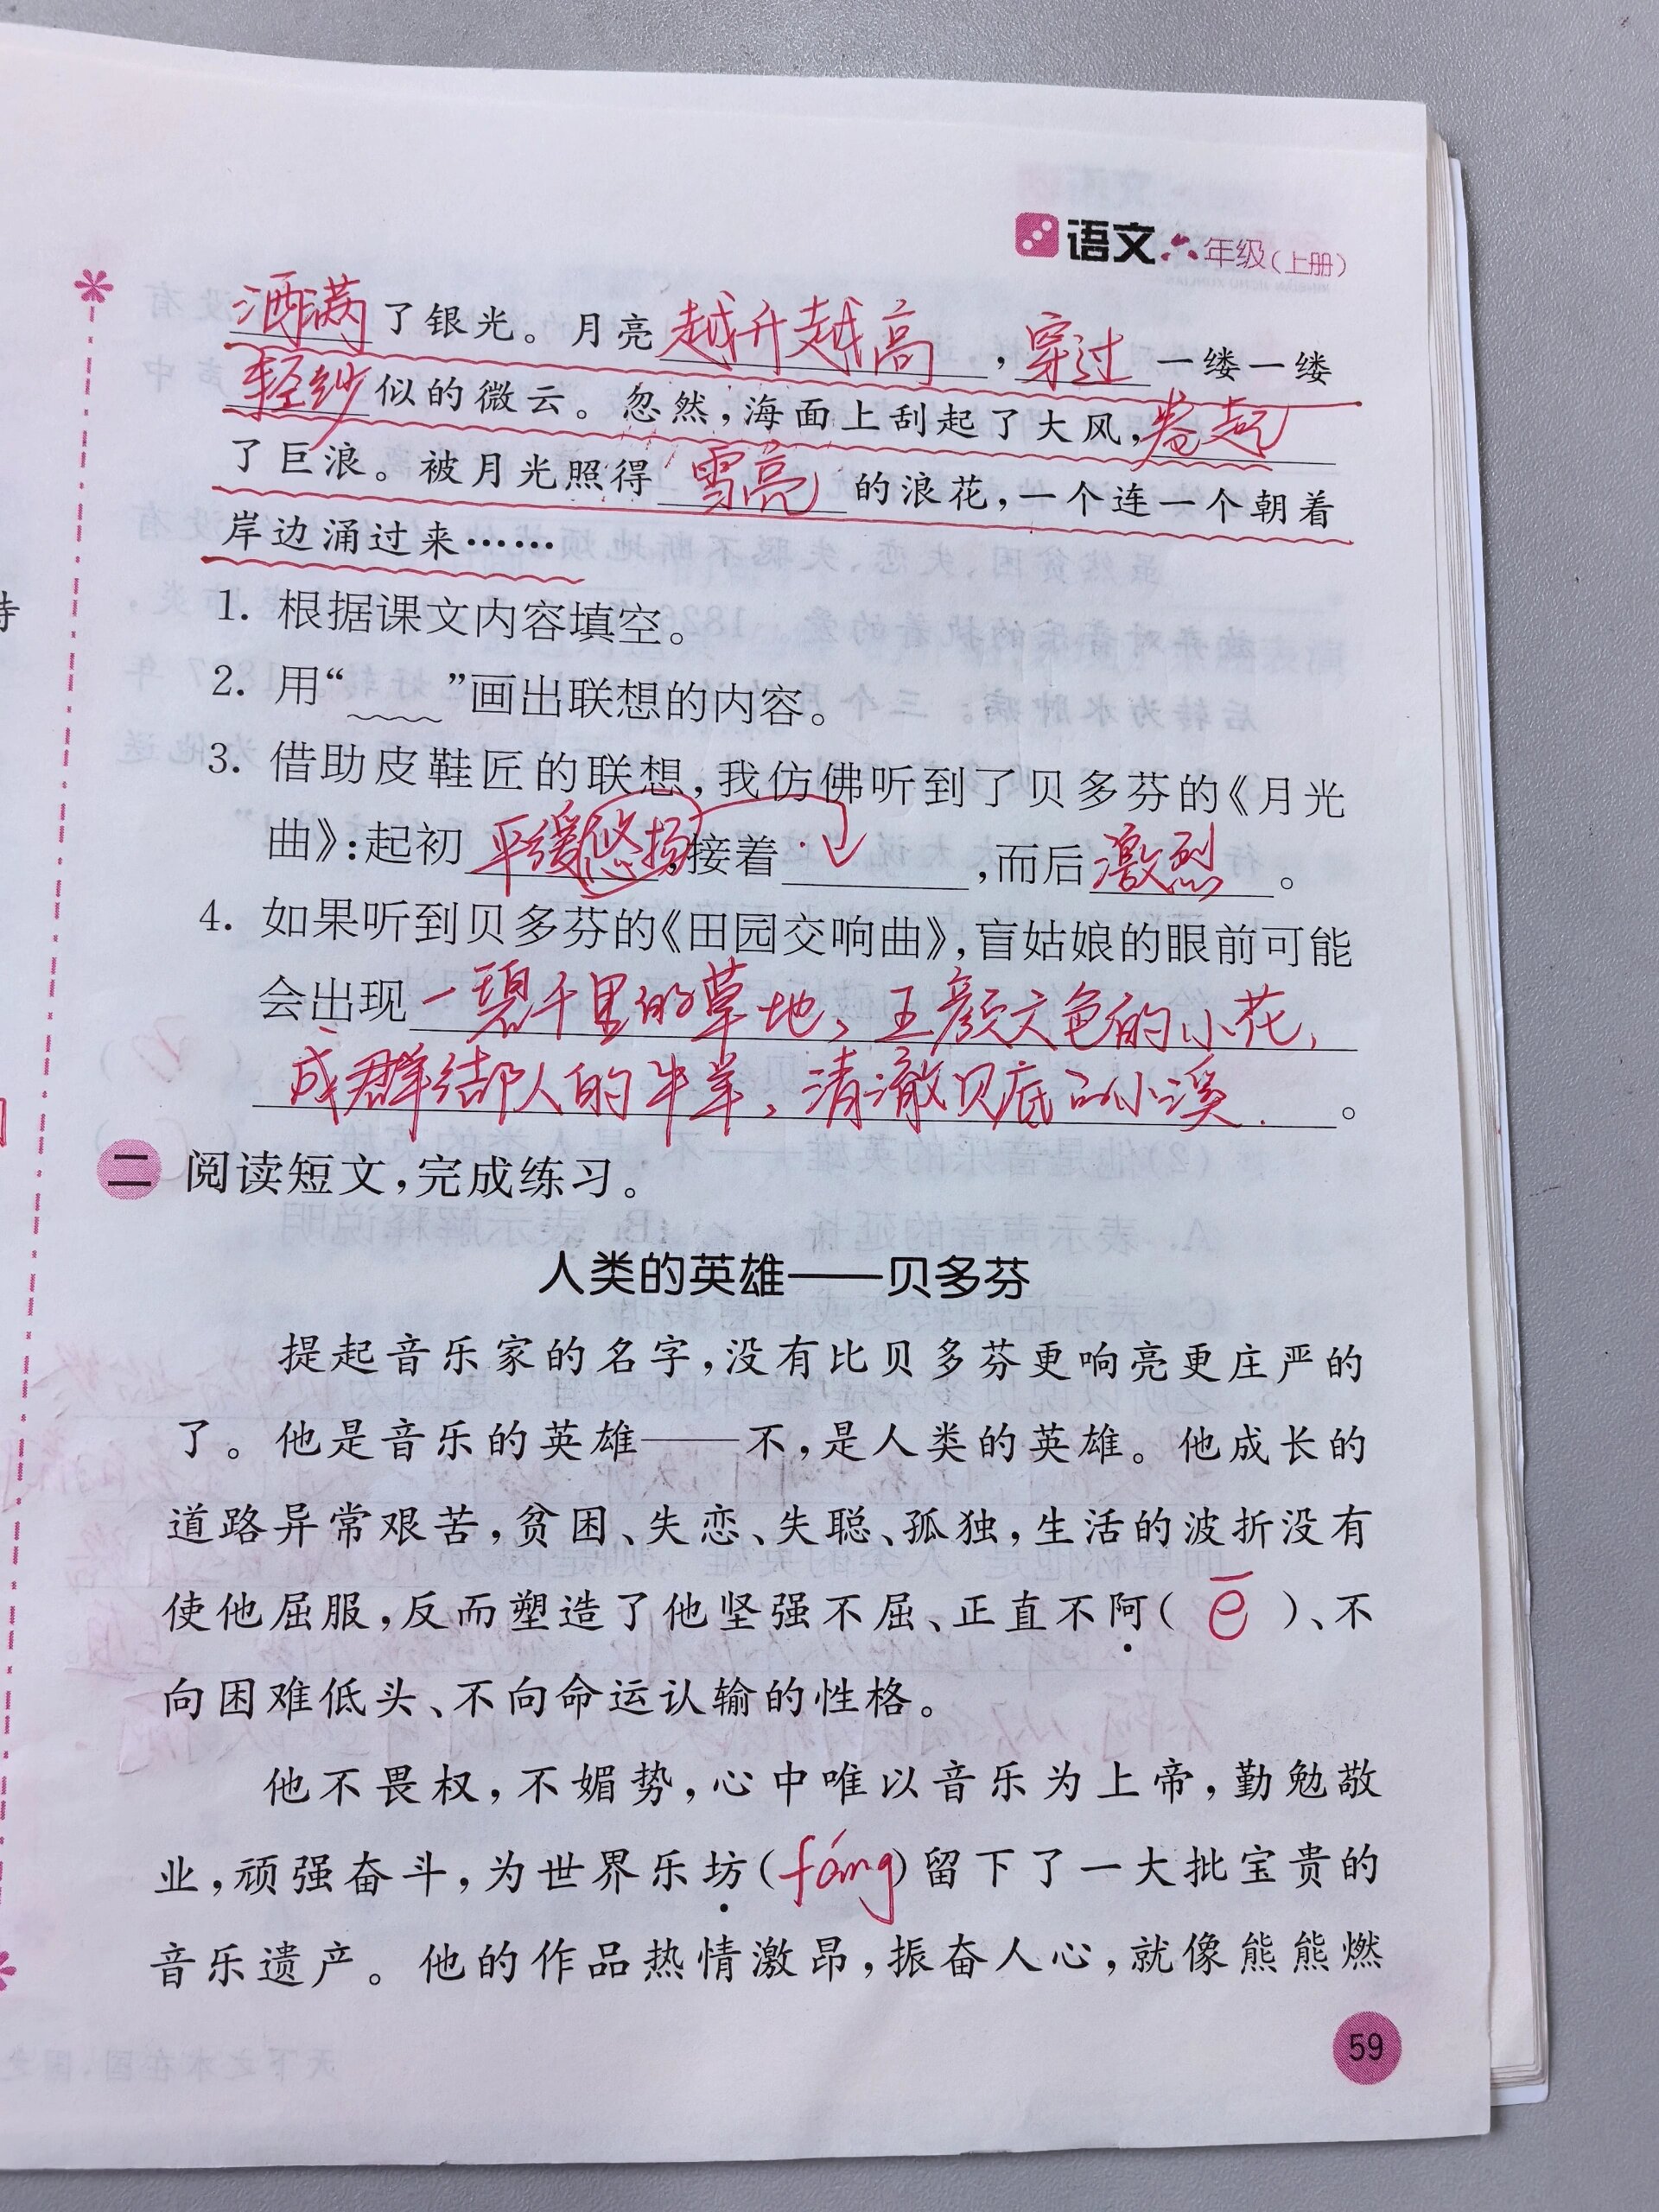 语文六年级(上册)
洒满了银光。月亮越升越高,穿过一缕一缕
轻纱似的微云。忽然,海面上刮起了大风,卷起
了巨浪。被月光照得雪亮的浪花,一个连一个朝着
岸边涌过来……
1. 根据课文内容填空。
2. 用“﹏﹏”画出联想的内容。
3. 借助皮鞋匠的联想,我仿佛听到了贝多芬的《月光
曲》:起初平缓悠扬,接着________,而后激烈。
4. 如果听到贝多芬的《田园交响曲》,盲姑娘的眼前可能
会出现一碧千里的草地、五颜六色的小花、
成群结队的牛羊、清澈见底的小溪。
二 阅读短文,完成练习。
人类的英雄——贝多芬
提起音乐家的名字,没有比贝多芬更响亮更庄严的
了。他是音乐的英雄——不,是人类的英雄。他成长的
道路异常艰苦,贫困、失恋、失聪、孤独,生活的波折没有
使他屈服,反而塑造了他坚强不屈、正直不阿(ē)、不
向困难低头、不向命运认输的性格。
他不畏权,不媚势,心中唯以音乐为上帝,勤勉敬
业,顽强奋斗,为世界乐坊(fáng)留下了一大批宝贵的
音乐遗产。他的作品热情激昂,振奋人心,就像熊熊燃
59